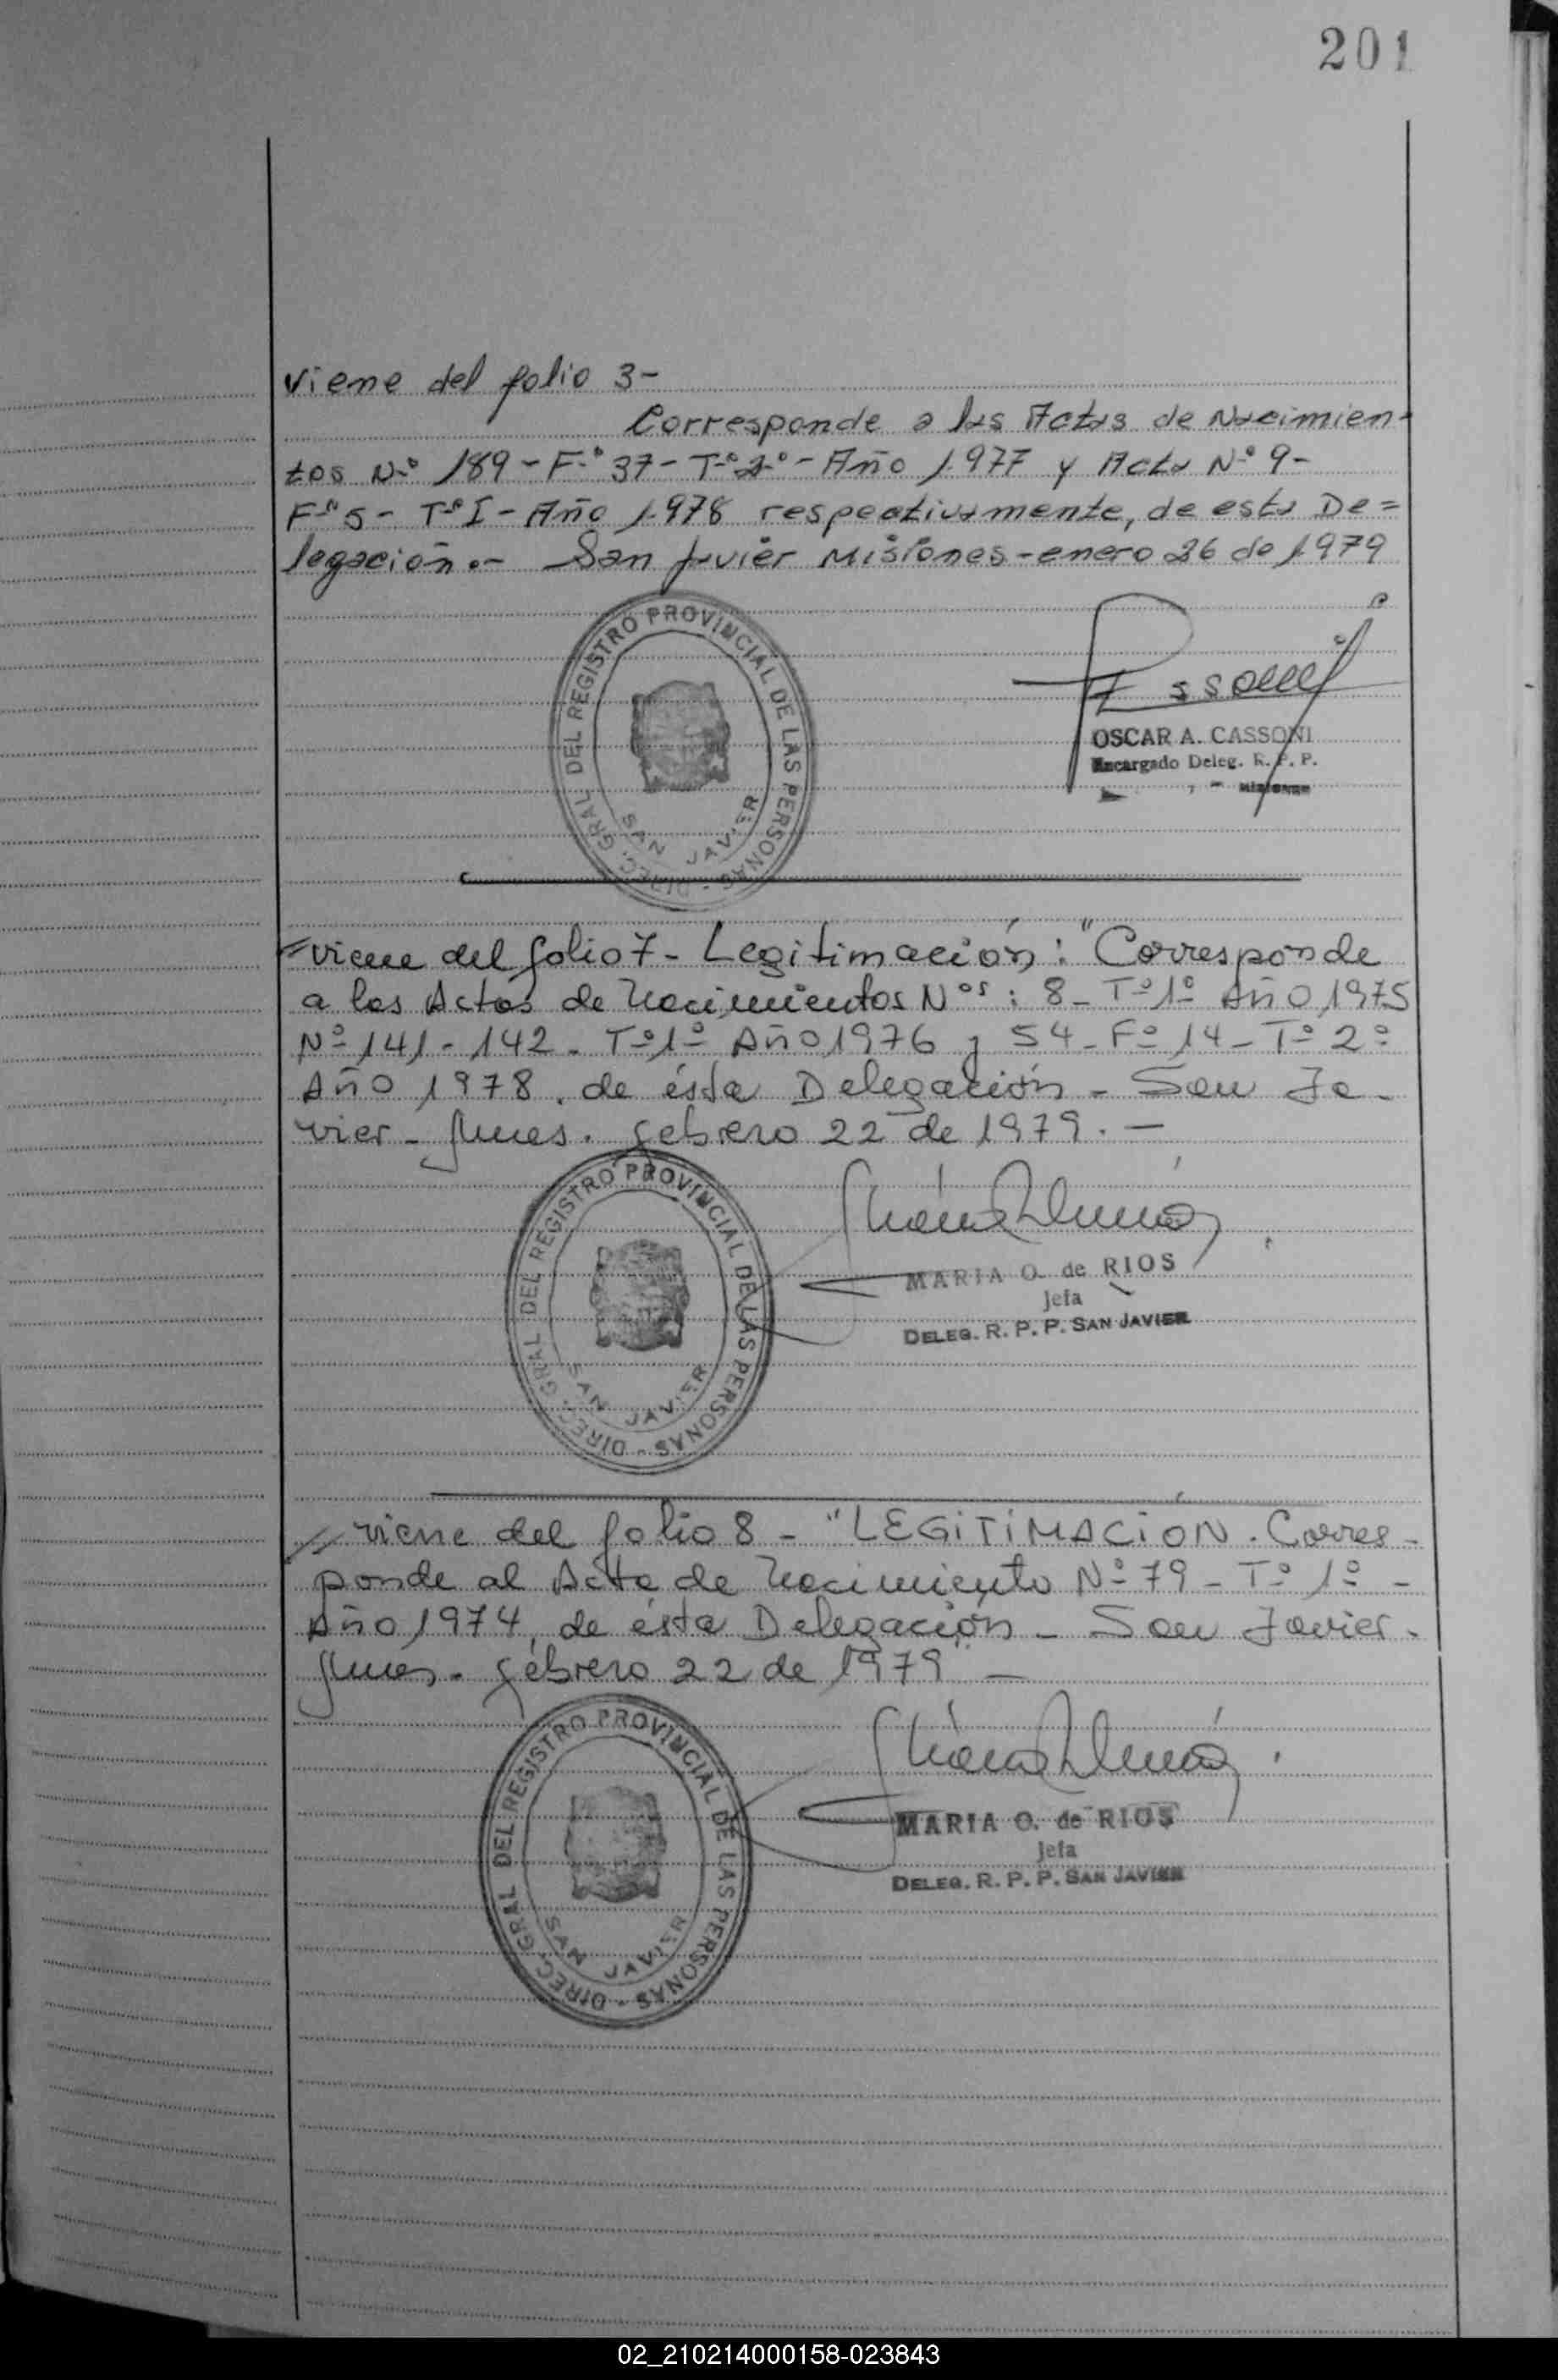 201
Viene del folio 3-
Corresponde a las Actas de Nacimien-
tos N.º 189 - F.º 37 - T.º 2.º - Año 1977 y Acta N.º 9 -
Fº 5 - Tº I - Año 1978 respectivamente, de esta De=
legación.- San Javier Misiones - enero 26 de 1979
DIREC. GRAL. DEL REGISTRO PROVINCIAL DE LAS PERSONAS -
SAN JAVIER
OSCAR A. CASSONI
Encargado Deleg. R. P. P.
Misiones
viene del folio 7 - Legitimación: "Corresponde
a las Actas de Nacimientos Nos: 8 - Tº 1º Año 1975
Nº 141 - 142 - Tº 1º Año 1976 y 54 - Fº 14 - Tº 2º
Año 1978, de ésta Delegación - San Ja-
vier - Mnes. febrero 22 de 1979. -
DIREC. GRAL. DEL REGISTRO PROVINCIAL DE LAS PERSONAS -
SAN JAVIER
MARIA O. de RIOS
Jefa
DELEG. R. P. P. SAN JAVIER
// viene del folio 8 - "LEGITIMACIÓN. Corres-
ponde al Acta de Nacimiento Nº 79 - Tº 1º -
Año 1974, de ésta Delegación - San Javier.
Mnes. febrero 22 de 1979" -
DIREC. GRAL. DEL REGISTRO PROVINCIAL DE LAS PERSONAS -
SAN JAVIER
MARIA O. de RIOS
Jefa
DELEG. R. P. P. SAN JAVIER
02_210214000158-023843